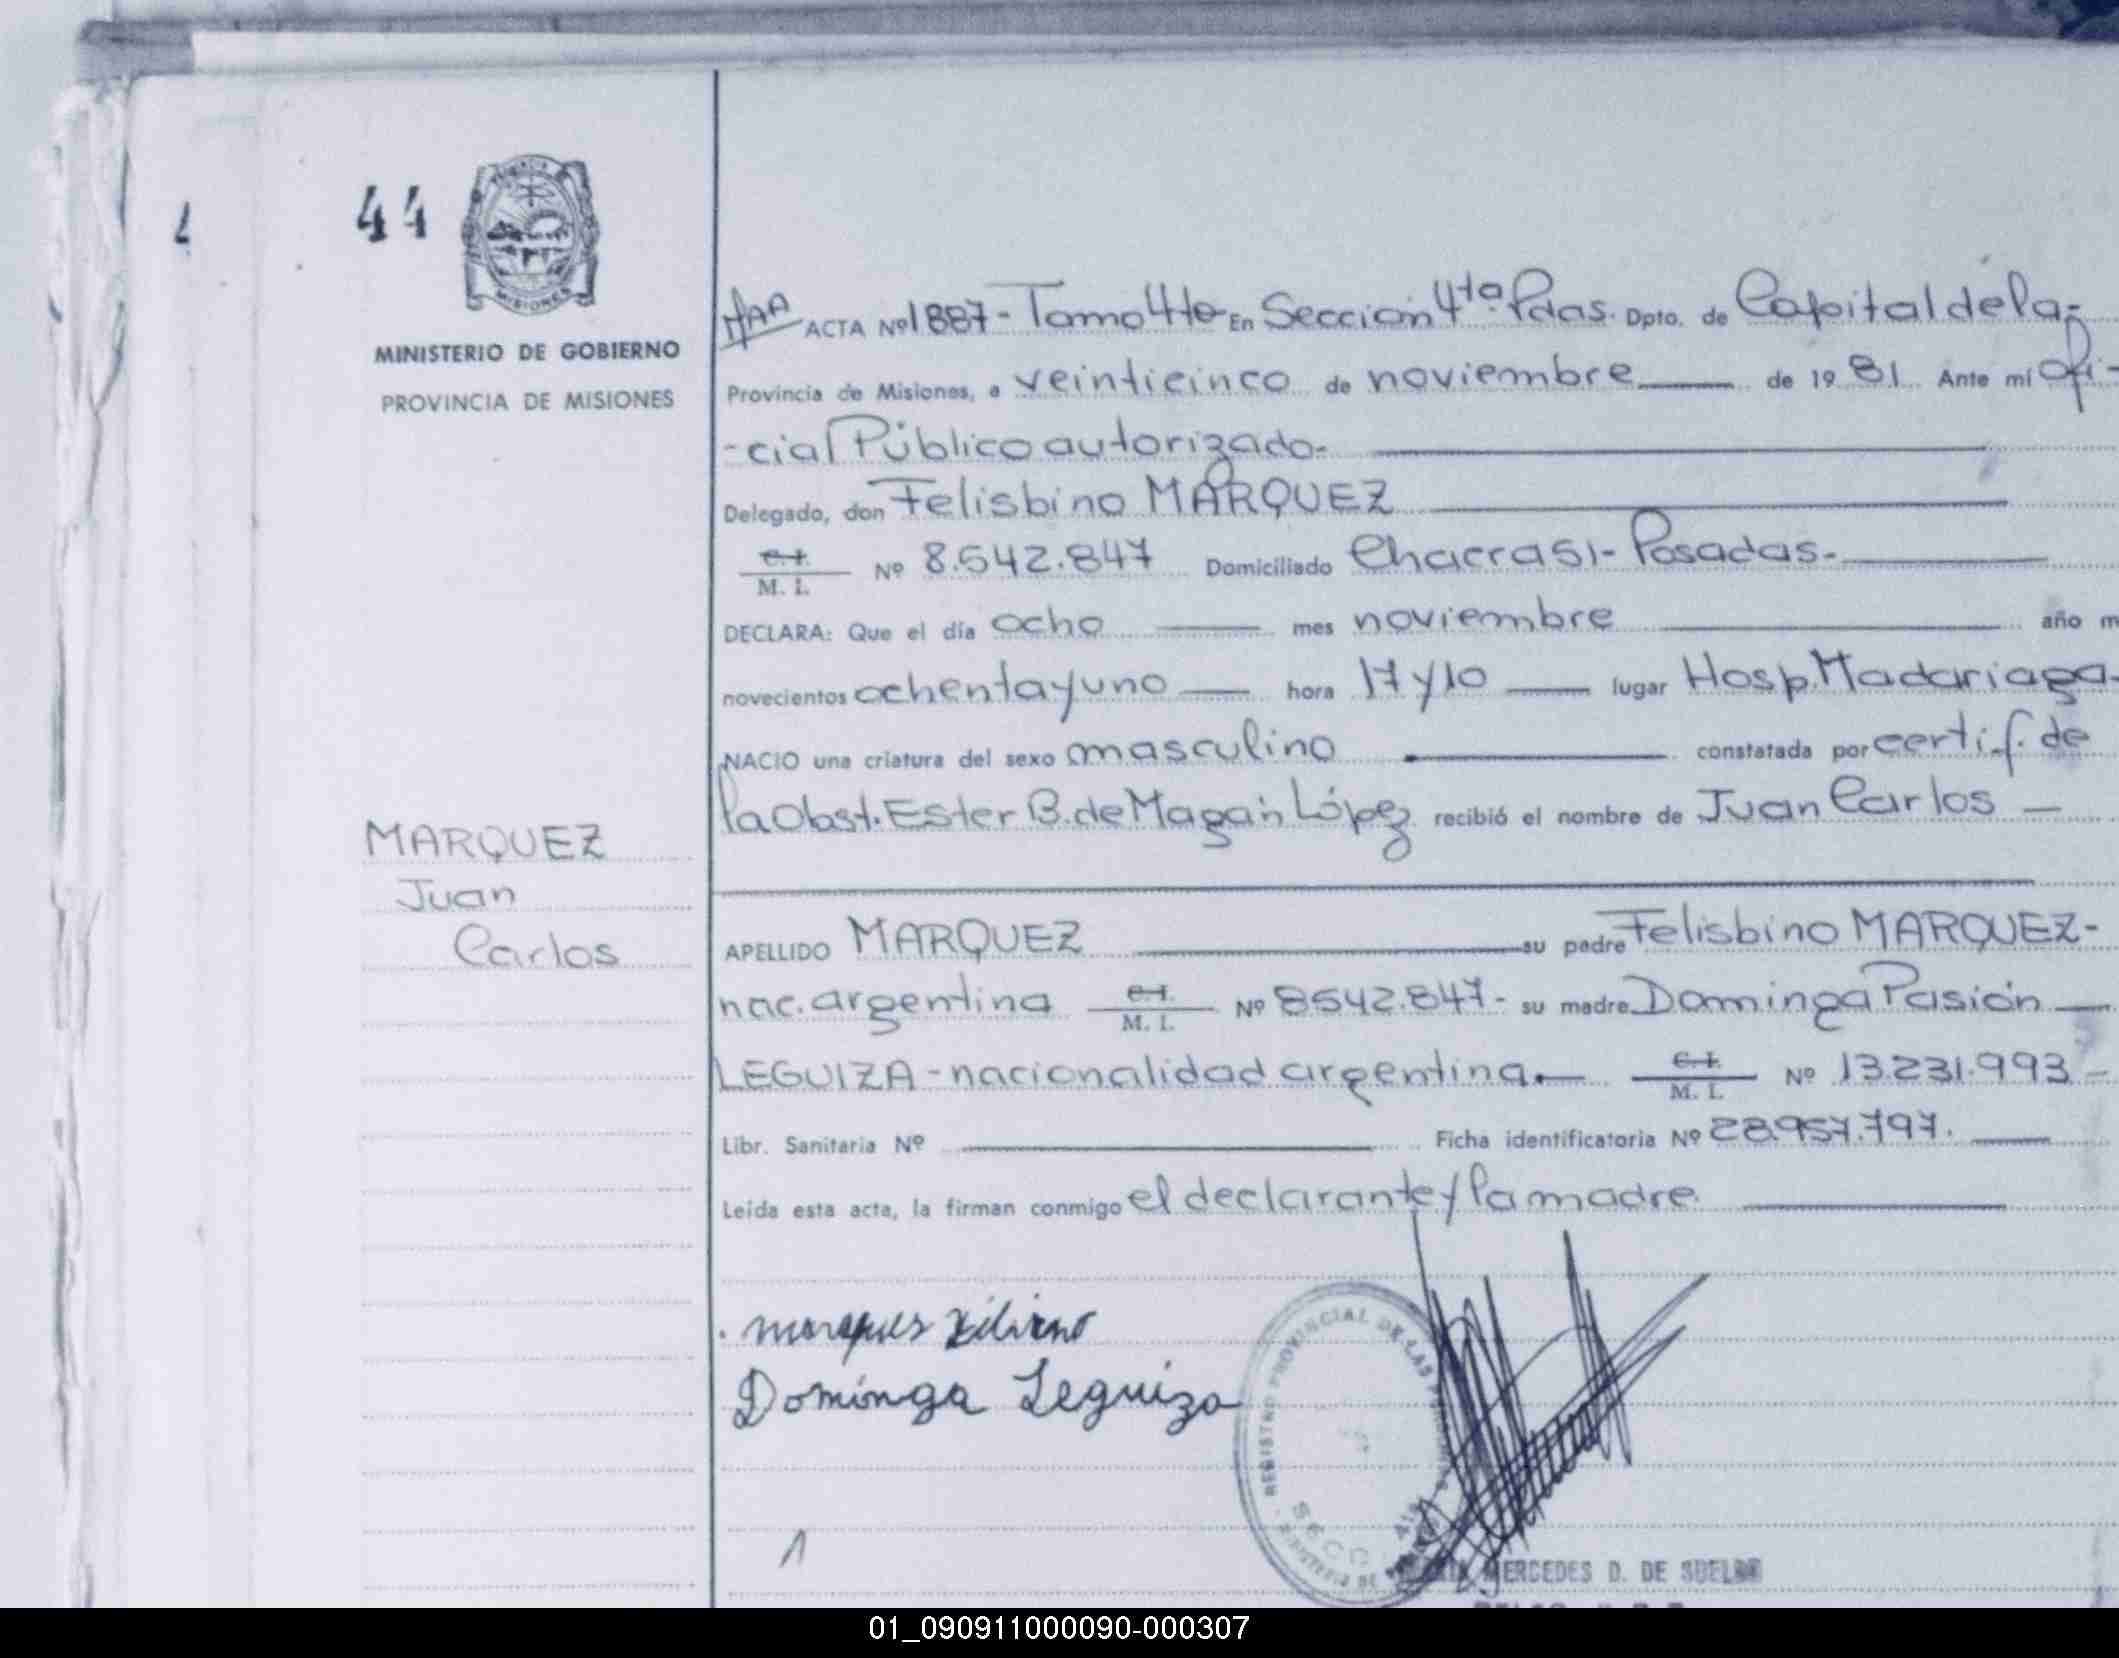 44
MISIONES
MINISTERIO DE GOBIERNO
PROVINCIA DE MISIONES
MARQUEZ
Juan
Carlos
ACTA Nº 1887- Tomo 4to En Sección 4ta. Pdas. Dpto. de Capital de la-
Provincia de Misiones, a veinticinco de noviembre de 19 81. Ante mí ofi-
-cial Público autorizado.
Delegado, don Felisbino MARQUEZ
C.I.
M. I. Nº 8.542.847 Domiciliado Chacra 51- Posadas.
DECLARA: Que el día ocho mes noviembre año m
novecientos ochenta y uno hora 17 y 10 lugar Hosp. Madariaga-
NACIO una criatura del sexo masculino constatada por certif. de
la Obst. Ester B. de Magán López recibió el nombre de Juan Carlos
APELLIDO MARQUEZ su padre Felisbino MARQUEZ-
nac. argentina C.I. M. I. Nº 8542.847- su madre Dominga Pasión
LEGUIZA - nacionalidad argentina. C.I. M. I. Nº 13.231.993
Libr. Sanitaria Nº Ficha identificatoria Nº 28.957.797.
Leída esta acta, la firman conmigo el declarante y la madre.
Dominga Leguiza
REGISTRO PROVINCIAL DE LAS
MERCEDES D. DE SUELDO
01_090911000090-000307